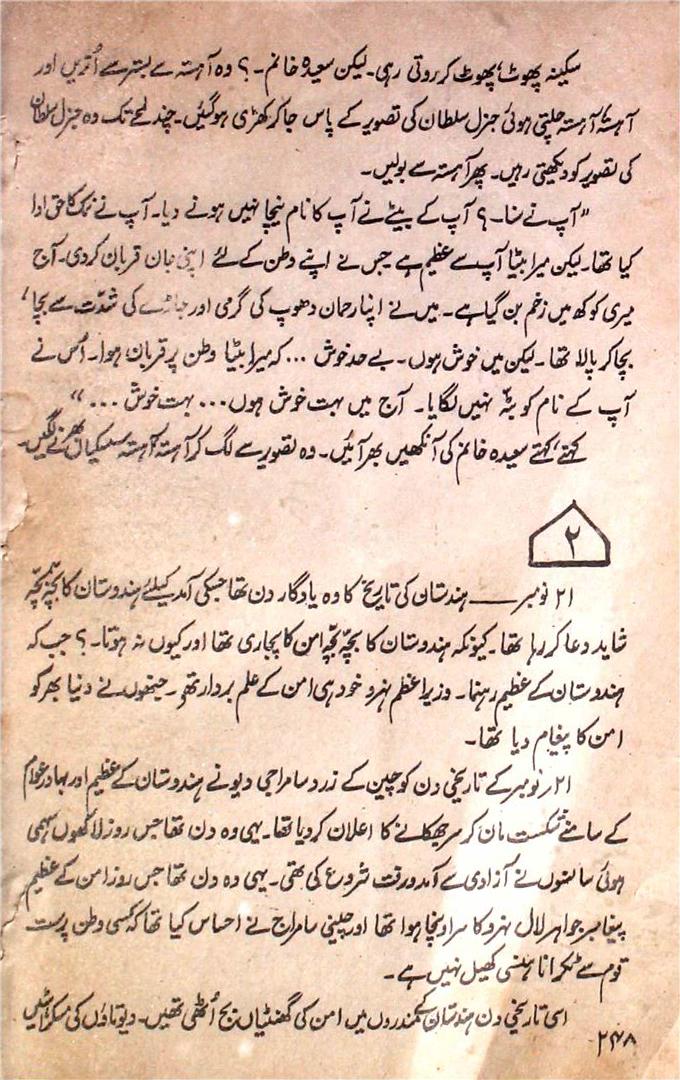 سکینہ پھوٹ پھوٹ کر روتی رہی۔ لیکن سعیدہ خانم۔؟ وہ آہستہ سے بستر سے اُتریں اور
آہستہ آہستہ چلتی ہوئی جنرل سلطان کی تصویر کے پاس جا کر کھڑی ہوگئیں۔ چند لمحے تک وہ جنرل سلطان
کی تصویر کو دیکھتی رہیں۔ پھر آہستہ سے بولیں۔
"آپ نے سنا۔؟ آپ کے بیٹے نے آپ کا نام نیچا نہیں ہونے دیا۔ آپ نے نمک کا حق ادا
کیا تھا۔ لیکن میرا بیٹا آپ سے عظیم ہے جس نے اپنے وطن کے لئے اپنی جان قربان کردی۔ آج
میری کوکھ میں زخم بن گیا ہے۔ میں نے اپنا رحمان دھوپ کی گرمی اور جاڑے کی شدّت سے بچا
بچا کر پالا تھا۔ لیکن میں خوش ہوں۔ بے حد خوش ... کہ میرا بیٹا وطن پر قربان ہوا۔ اُس نے
آپ کے نام کو بٹہ نہیں لگایا۔ آج میں بہت خوش ہوں... بہت خوش ..."
کہتے کہتے سعیدہ خانم کی آنکھیں بھر آئیں۔ وہ تصویر سے لگ کر آہستہ آہستہ سسکیاں بھرنے لگیں۔
۲
۲۱ نومبر ــــ ہندستان کی تاریخ کا وہ یادگار دن تھا جسکی آمد کیلئے ہندوستان کا بچّہ بچّہ
شاید دعا کر رہا تھا۔ کیونکہ ہندوستان کا بچّہ بچّہ امن کا پجاری تھا اور کیوں نہ ہوتا۔؟ جب کہ
ہندوستان کے عظیم رہنما۔ وزیر اعظم نہرو خود ہی امن کے علم بردار تھے۔ جنھوں نے دنیا بھر کو
امن کا پیغام دیا تھا۔
۲۱ر نومبر کے تاریخی دن کو چین کے زرد سامراجی دیو نے ہندوستان کے عظیم اور بہادر عوام
کے سامنے شکست مان کر سر جھکانے کا اعلان کردیا تھا۔ یہی وہ دن تھا جس روز لاکھوں سہمی
ہوئی سانسوں نے آزادی سے آمد و رفت شروع کی تھی۔ یہی وہ دن تھا جس روز امن کے عظیم
پیغامبر جواہر لال نہرو کا سر اونچا ہوا تھا اور چینی سامراج نے احساس کیا تھا کہ کسی وطن پرست
قوم سے ٹکرانا ہنسی کھیل نہیں ہے۔
اسی تاریخی دن ہندستان کے مندروں میں امن کی گھنٹیاں بج اُٹھی تھیں۔ دیوتاؤں کی مسکراہٹیں
۲۴۸